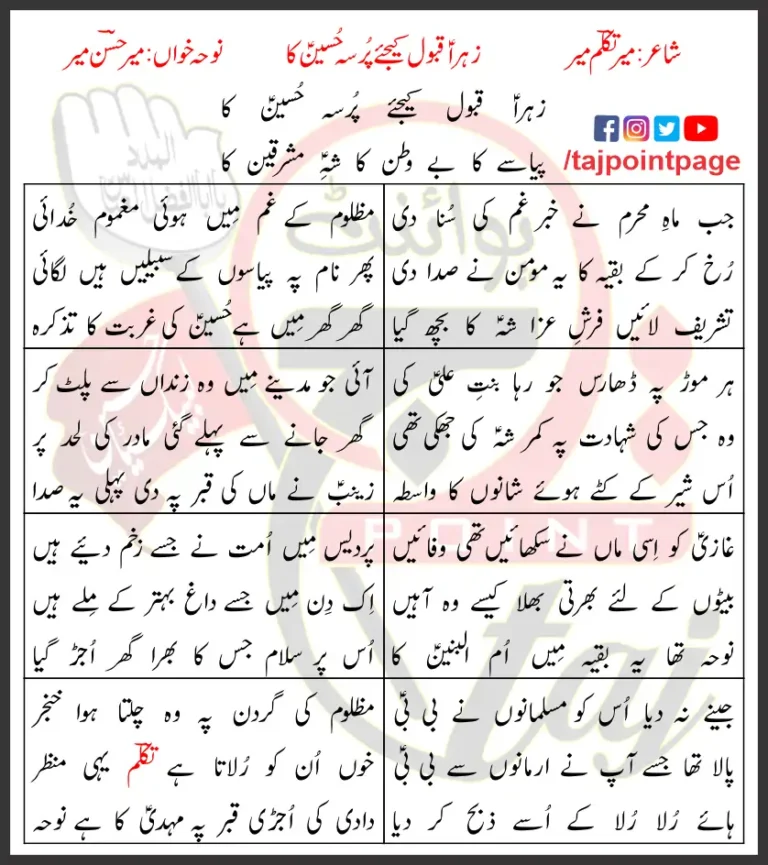 شاعر: میر تکلمؔ میر
زہراؑ قبول کیجئے پُرسہ حُسینؑ کا
نوحہ خواں: میر حسن میر
زہراؑ قبول کیجئے پُرسہ حُسینؑ کا
پیاسے کا بے وطن کا شہِؑ مشرقین کا
/tajpointpage
جب ماہِ محرم نے خبر غم کی سُنا دی
رُخ کر کے بقیہ کا یہ مومن نے صدا دی
تشریف لائیں فرشِ عزا شہؑ کا بچھ گیا
مظلوم کے غم میں ہوئی مغموم خُدائی
پھر نام پہ پیاسوں کے سبیلیں ہیں لگائی
گھر گھر میں ہے حُسینؑ کی غربت کا تذکرہ
ہر موڑ پہ ڈھارس جو رہا بنتِ علیؑ کی
وہ جس کی شہادت پہ کمر شہؑ کی جھکی تھی
اُس شیر کے کٹے ہوئے شانوں کا واسطہ
آئی جو مدینے میں وہ زنداں سے پلٹ کر
گھر جانے سے پہلے گئی مادر کی لحد پر
زینبؑ نے ماں کی قبر پہ دی پہلی یہ صدا
غازیؑ کو اِسی ماں نے سکھائیں تھی وفائیں
بیٹوں کے لئے بھرتی بھلا کیسے وہ آہیں
نوحہ تھا یہ بقیہ میں اُم البنینؑ کا
پردیس میں اُمت نے جسے زخم دیئے ہیں
اِک دِن میں جسے داغ بہتر کے مِلے ہیں
اُس پر سلام جس کا بھرا گھر اُجڑ گیا
جینے نہ دیا اُس کو مسلمانوں نے بی بیؑ
پالا تھا جسے آپ نے ارمانوں سے بی بیؑ
ہائے رُلا رُلا کے اُسے ذبح کر دیا
مظلوم کی گردن پہ وہ چلتا ہوا خنجر
خوں اُن کو رُلاتا ہے تکلمؔ یہی منظر
دادی کی اُجڑی قبر پہ مہدیؑ کا ہے نوحہ
پوائنٹ
POINT
taj